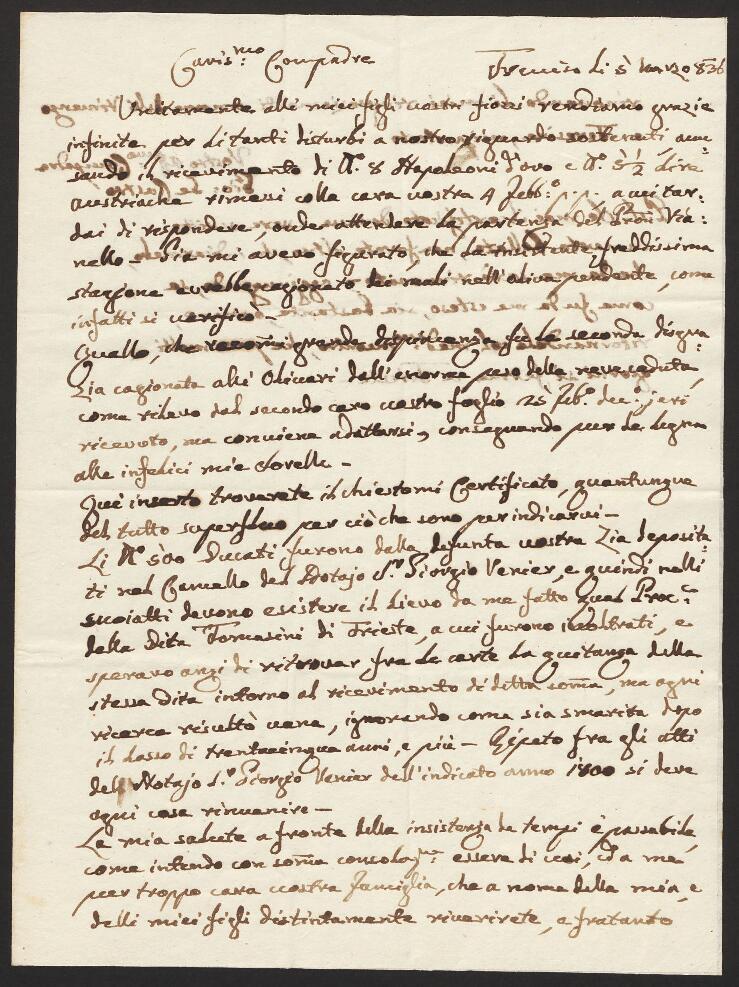 Caris:mo Compadre
Treviso li 5 Marzo 836
Unitamente alli miei figli vostri fiozzi rendiamo grazie
infinite per li tanti disturbi a nostro riguardo sostenuti, accu=
sando il ricevimento di N.° 8 Napoleoni d'oro e N.° 5½ lire
austriache rimessi colla cara vostra 4 Febb.° p.p. a cui tar=
dai di rispondere, onde attendere la partenza del Pron Via=
nello. Già mi avevo figurato, che la insistente freddissima
stagione avrebbe cagionato dei mali nell'oliva pendente, come
infatti si verificò -
Quello, che grande dispiacenza fu la seconda disgra=
zia cagionata alli Olivari dall'enorme peso della neve caduta,
come rilevo dal secondo caro vostro foglio 25 Feb.° dec.° jeri
ricevuto, ma conviene adattarsi, conseguendo pur la legna
alle infelici mie sorelle -
Quì inserto troverete il chiestomi Certificato, quantunque
del tutto superfluo per ciò che sono per indicarvi -
Li N.° 500 Ducati furono dalla defunta vostra Zia deposita=
ti nel Cancello del Notajo S.r Giorgio Venier, e quindi nelli
suoi atti devono esistere il lievo da me fatto qual Proc.e
della Dita Tomasini di Trieste, a cui furono inoltrati, e
speravo anzi di ritrovar fra le carte la quitanza della
stessa Dita intorno al ricevimento di detta soma, ma ogni
ricerca riescì vana, ignorando come sia smarita dopo
il lasso di trentacinque anni, e più - Ripeto fra gli atti
del Notajo S.r Giorgio Venier dell'indicato anno 1800 si deve
ogni cosa rinvenire -
La mia salute a fronte della insistenza de tempi è passabile,
come intendo con soma consolazne essere di voi, ed a me
pur troppo cara vostra famiglia, che a nome della mia, e
delli miei figli distintamente riverirete, e fratanto